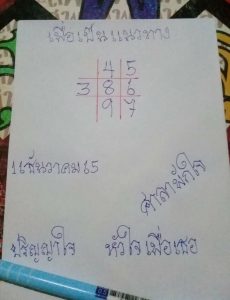 เพื่อเป็นแนวทาง
4 5
3 8 6
9 7
1 ธันวาคม 65
ศาลาพักใจ
ปริญญาใจ หัวใจเพื่อเธอ